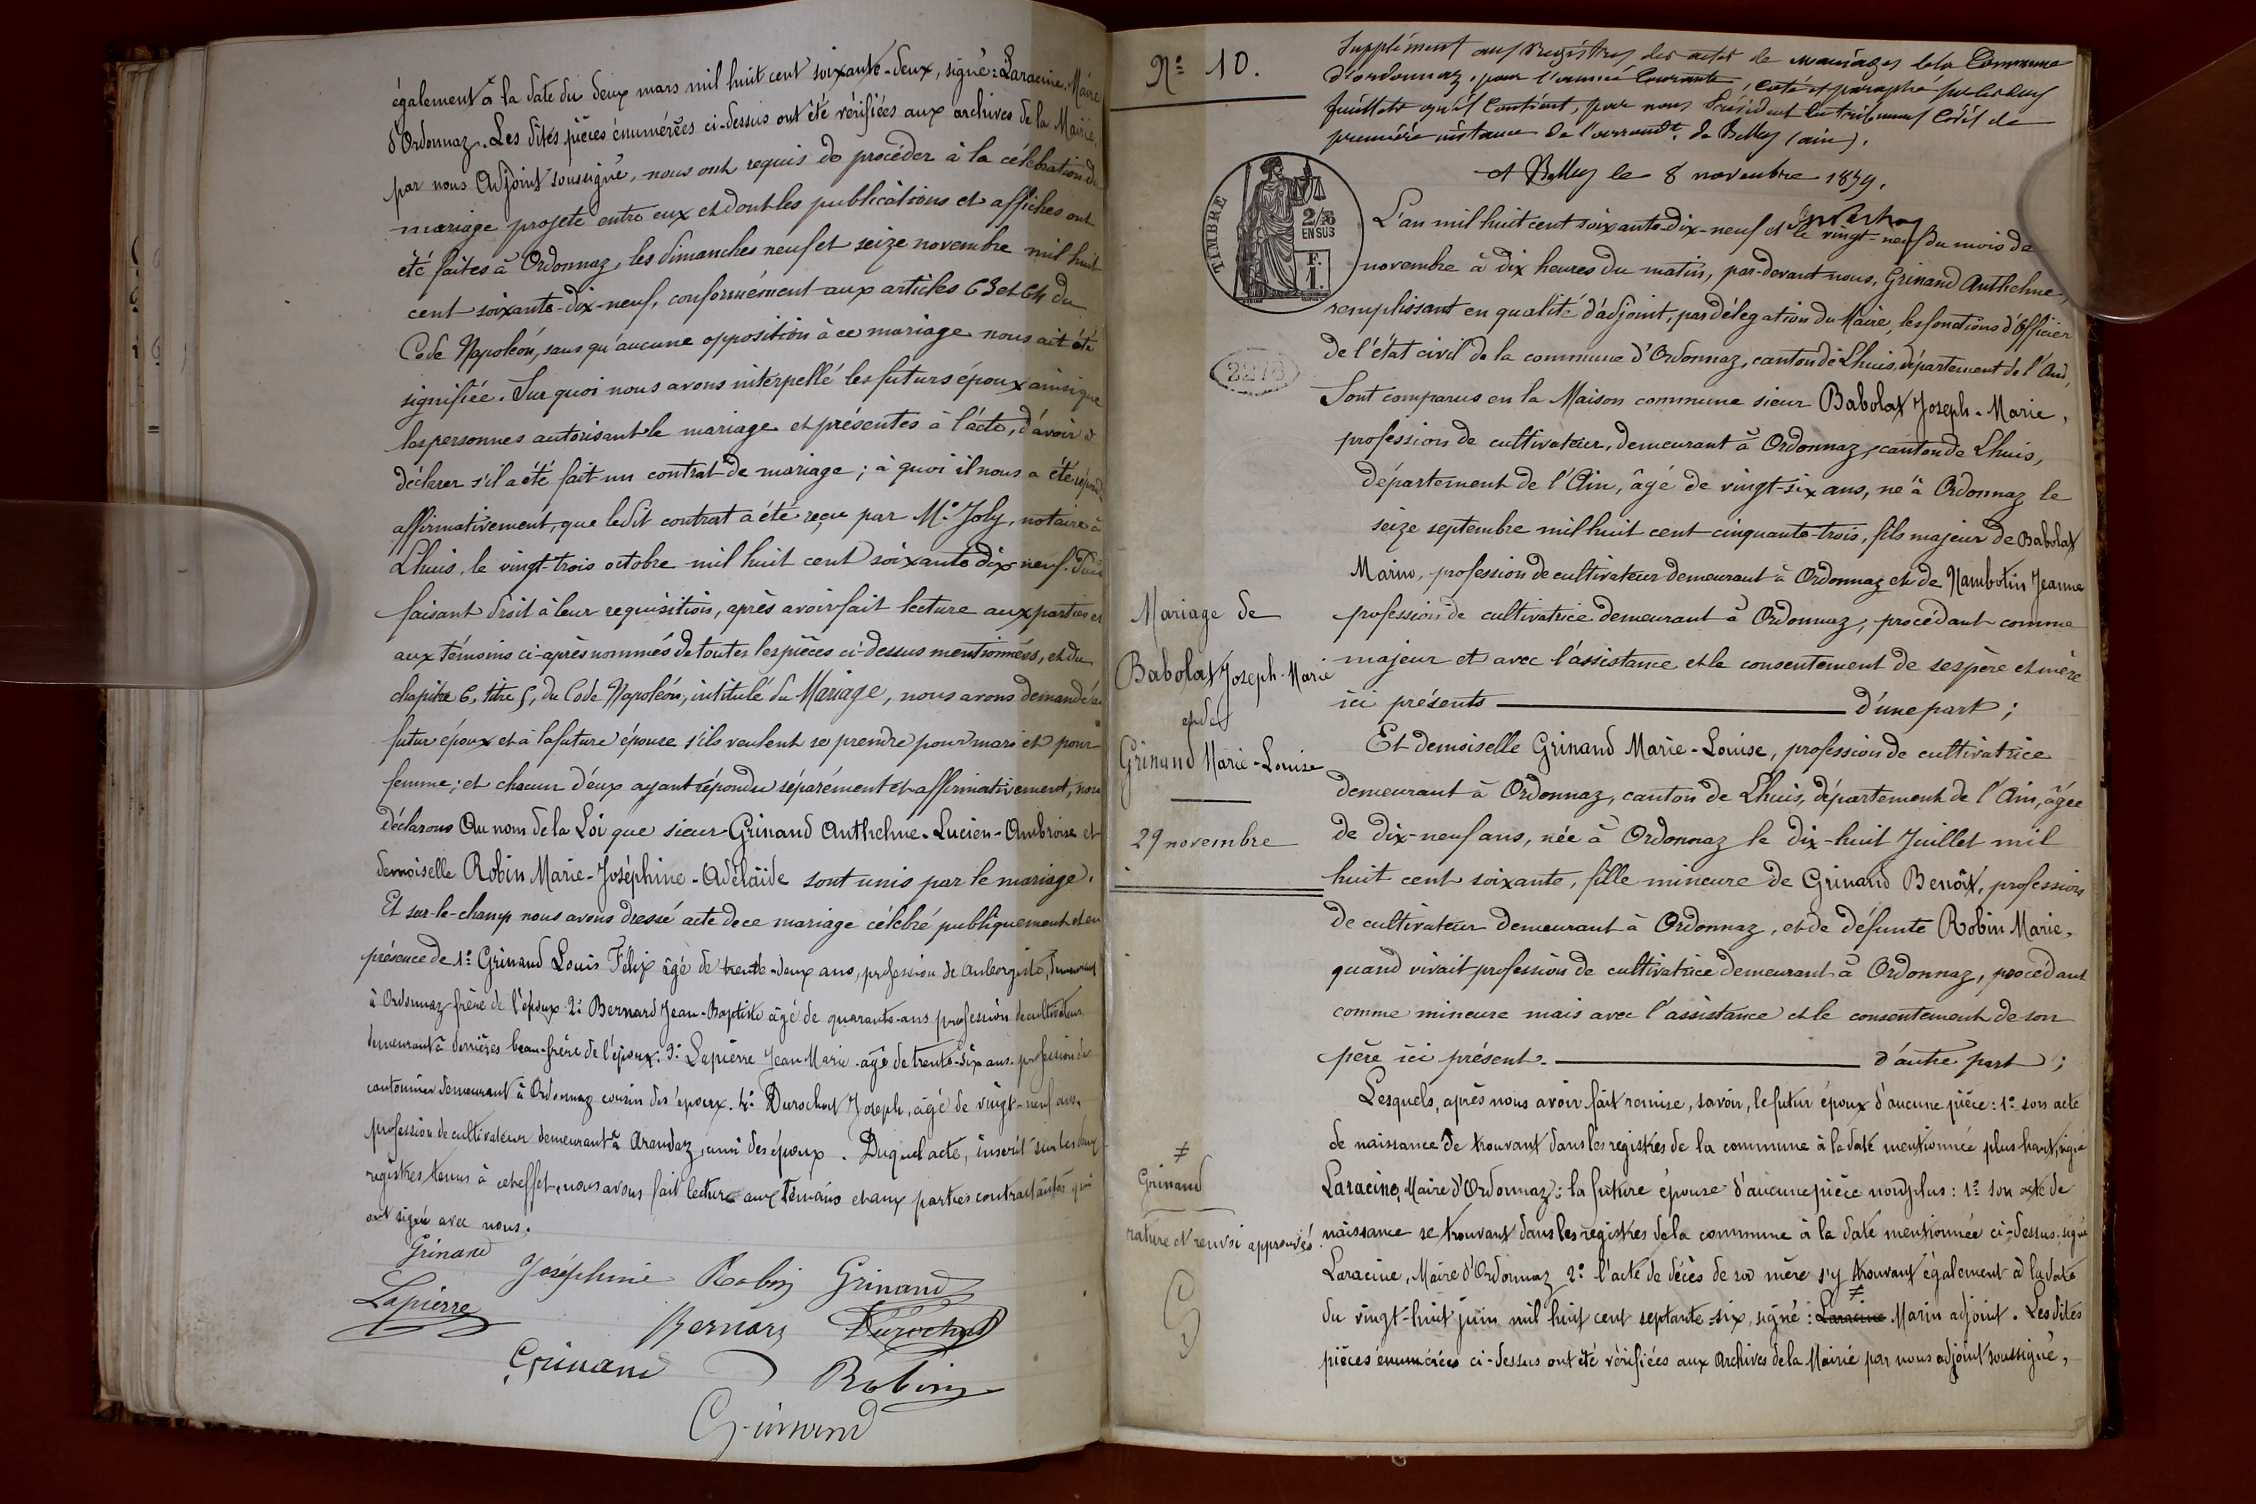 également à la date du deux mars mil huit cent soixante-deux, signé: Laracine, Maire
d'Ordonnaz. Les dites pièces énumérées ci-dessus ont été vérifiées aux archives de la Mairie,
par nous Adjoint soussigné, nous ont requis de procéder à la célébration du
mariage projeté entre eux et dont les publications et affiches ont
été faites à Ordonnaz, les dimanches neuf et seize novembre mil huit
cent soixante-dix-neuf, conformément aux articles 63 et 64 du
Code Napoléon, sans qu'aucune opposition à ce mariage nous ait été
signifiée. Sur quoi nous avons interpellé les futurs époux ainsi que
les personnes autorisant le mariage et présentes à l'acte, d'avoir à
déclarer s'il a été fait un contrat de mariage; à quoi il nous a été répondu
affirmativement, que ledit contrat a été reçu par Me Joly, notaire à
Lhuis, le vingt-trois octobre mil huit cent soixante dix neuf.
faisant droit à leur requisition, après avoir fait lecture aux parties et
aux témoins ci-après nommés de toutes les pièces ci-dessus mentionnées, et du
chapitre 6, titre 5, du Code Napoléon, intitulé du Mariage, nous avons demandé au
futur époux et à la future épouse s'ils veulent se prendre pour mari et pour
femme; et chacun d'eux ayant répondu séparément et affirmativement, nous
déclarons Au nom de la Loi que sieur Grinand Anthelme-Lucien-Ambroise et
demoiselle Robin Marie-Joséphine-Adélaïde sont unis par le mariage.
Et sur-le-champ nous avons dressé acte de ce mariage célébré publiquement et en
présence de 1º Grinand Louis Félix âgé de trente-deux ans, profession de aubergiste, demeurant
à Ordonnaz frère de l'époux 2º Bernard Jean-Baptiste âgé de quarante-ans profession de cultivateur
demeurant à derrières beau-frère de l'époux. 3º Lapierre Jean Marie âgé de trente-six ans profession de
cantonnier demeurant à Ordonnaz cousin des époux. 4º Durochat Joseph, âgé de vingt-neuf ans,
profession de cultivateur demeurant à Arandaz, ami des époux. Duquel acte, inscrit sur les deux
registres tenus à cet effet, nous avons fait lecture aux témoins et aux parties contractantes qui
ont signé avec nous.
Grinand
Joséphine Robin Grinand
Lapierre
Bernard Durochat
Grinand
Robin
Grinand
Nº 10.
Supplément aux registres des actes de mariages de la Commune
d'ordonnaz, pour l'année Courante, Coté et paraphé sur les deux
feuillets qu'il Contient, par nous Président du tribunal Civil de
première instance de l'arrondt. de Belley (ain).
A Belley le 8 novembre 1879.
TIMBRE
2/10
EN SUS
F.
1.
2278
L'an mil huit cent soixante-dix-neuf et le vingt-neuf du mois de
novembre à dix heures du matin, par-devant nous, Grinand Anthelme,
remplissant en qualité d'adjoint, par délégation du Maire, les fonctions d'Officier
de l'état civil de la commune d'Ordonnaz, canton de Lhuis, département de l'Ain,
Sont comparus en la Maison commune sieur Babolat Joseph-Marie,
profession de cultivateur, demeurant à Ordonnaz, canton de Lhuis,
département de l'Ain, âgé de vingt-six ans, né à Ordonnaz le
seize septembre mil huit cent cinquante-trois, fils majeur de Babolat
Marin, profession de cultivateur demeurant à Ordonnaz et de Nambotin Jeanne
profession de cultivatrice demeurant à Ordonnaz, procédant comme
majeur et avec l'assistance et le consentement de ses père et mère
ici présents d'une part;
Mariage de
Babolat Joseph-Marie
et de
Grinand Marie-Louise
29 novembre
Et demoiselle Grinand Marie-Louise, profession de cultivatrice
demeurant à Ordonnaz, canton de Lhuis, département de l'Ain, âgée
de dix-neuf ans, née à Ordonnaz le dix-huit Juillet mil
huit cent soixante, fille mineure de Grinand Benoît, profession
de cultivateur demeurant à Ordonnaz, et de défunte Robin Marie,
quand vivait profession de cultivatrice demeurant à Ordonnaz, procédant
comme mineure mais avec l'assistance et le consentement de son
père ici présent. d'autre part;
Lesquels, après nous avoir fait remise, savoir, le futur époux d'aucune pièce: 1º son acte
de naissance se trouvant dans les registres de la commune à la date mentionnée plus haut, signé
Laracine, Maire d'Ordonnaz; la future épouse d'aucune pièce non plus: 1º son acte de
naissance se trouvant dans les registres de la commune à la date mentionnée ci-dessus, signé
Laracine, Maire d'Ordonnaz 2º l'acte de décès de sa mère s'y trouvant également à la date
du vingt-huit juin mil huit cent septante-six, signé: Laracine ≠ Marin adjoint. Les dites
pièces énumérées ci-dessus ont été vérifiées aux Archives de la Mairie par nous adjoint soussigné,
≠
Grinand
rature et renvoi approuvés
G